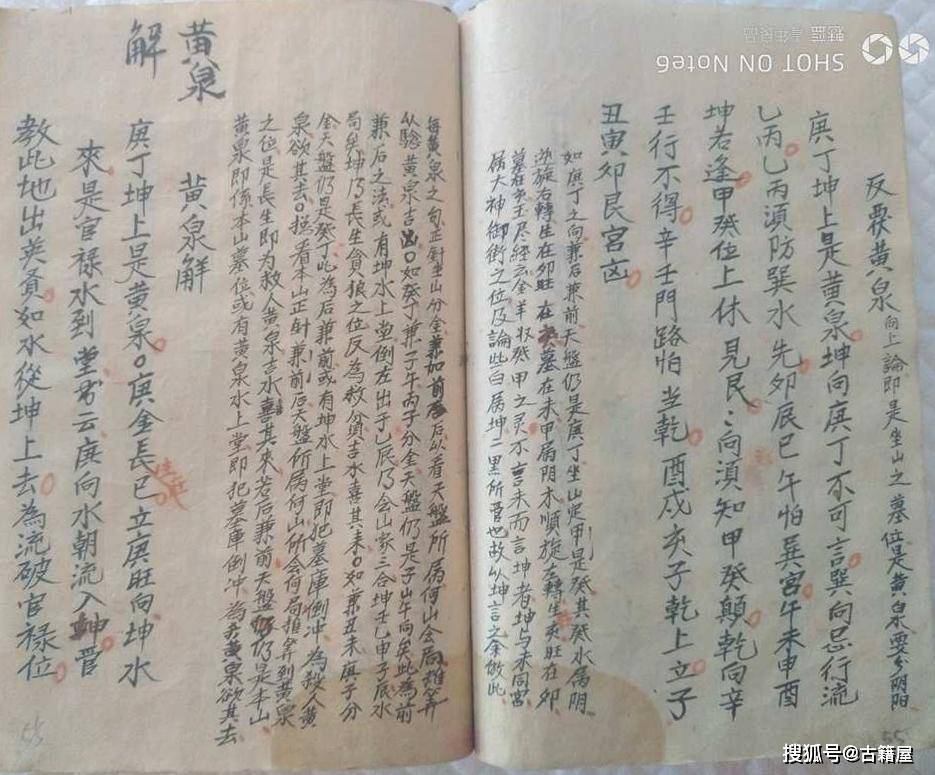 反覆黃泉 向上論即是坐山之墓位是黃泉要分陰陽
庚丁坤上是黃泉坤向庚丁不可言巽向忌行流
乙丙乙丙須防巽水先卯辰巳午怕巽宮午未申酉
坤若逢甲癸位上休見艮艮向須知甲癸顛乾向辛
壬行不得辛壬門路怕当乾酉戌亥子乾上立子
丑寅卯艮宮凶
如庚丁之向兼右兼前天盤仍是庚丁坐山定甲是癸其癸水属阴
迎旋右轉生在卯旺在亥墓在未甲属阳木順旋左轉生亥旺在卯
墓在亥玉尽經云金羊收癸甲之灵不言未而言坤者坤与未同宮
属大神御街之位及論此白属坤二黑所管也故以坤言之余倣此
解
黃泉
每黃泉之旬正針坐山分金兼加前后以看天盤所属何山会局推算
以驗黃泉吉凶如癸丁兼子午丙子分金天盤仍是子山午向矣此為前
兼后之法或有坤水上堂倒左出于乙辰乃会山家三合坤壬乙申子辰水
局矣坤乃長生貪狼之位反為救貧吉水喜其来如兼丑未庚子分
金天盤仍是癸丁此為后兼前或有坤水上堂即犯墓庫倒冲為殺人黃
泉欲其去捴看本山正針兼前后天盤所属何山所会何局推算到黃泉
之位是長生即为救人黃泉吉水喜其來若后兼前天盤仍是本山
黃泉即係本山墓位或有黃泉水上堂即犯墓庫倒冲為黃泉欲其去
黃泉解
庚丁坤上是黃泉庚金長巳立庚旺向坤水
生在
來是官祿水到堂書云庚向水朝流入坤管
教此地出英賢如水從坤上去為流破官祿位
55
55
SHOT ON Note6
搜狐号@古籍屋